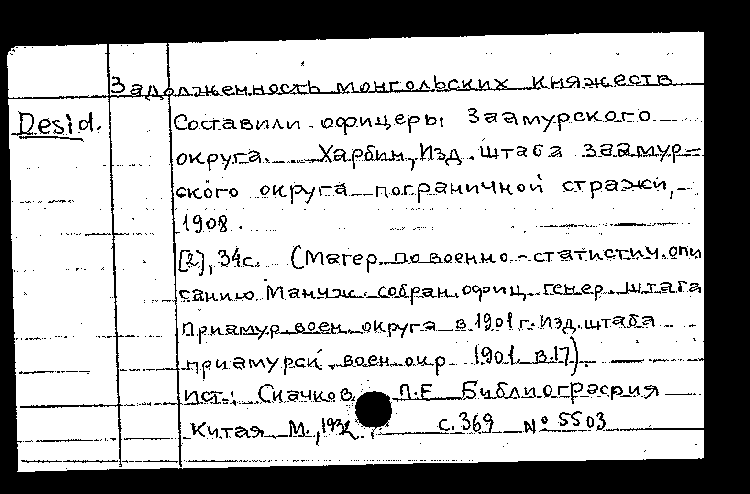 Задолженность монгольских княжеств
Desid.
Составили офицеры Заамурского
округа. Харбин, Изд. штаба заамур-
ского округа пограничной стражи,
1908.
[2], 34с. (Матер. по военно-статистич. опи
санию Манчж. собран. офиц. генер. штаба
Приамур. воен. округа в 1901 г. Изд. штаба
приамурск. воен. окр. 1901. в.17).
Ист.: Скачков П.Е Библиография
Китая М., с. 369 № 5503